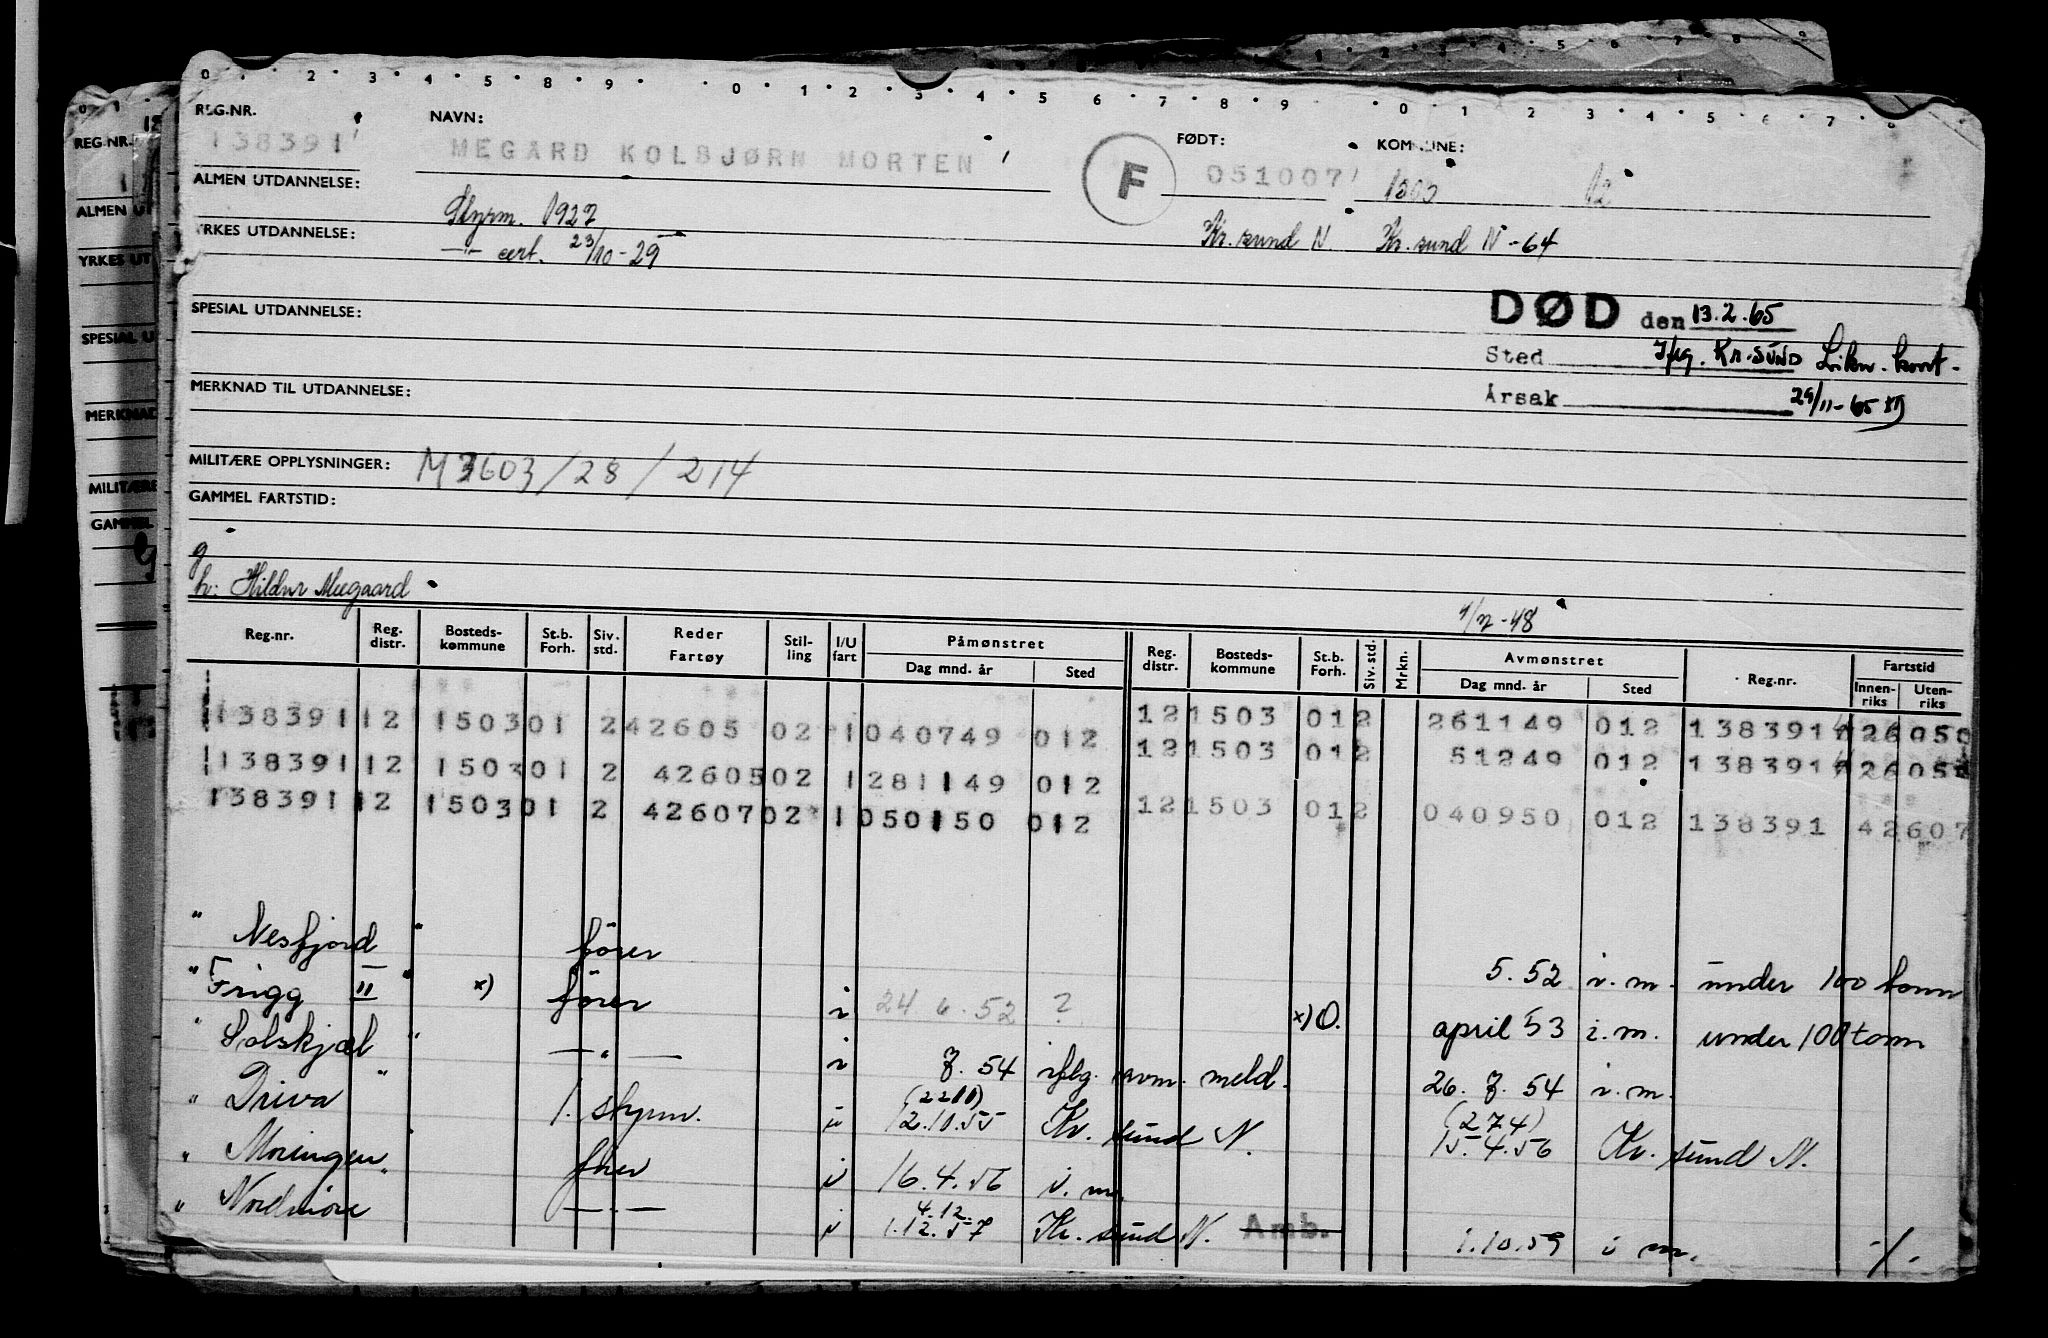 REG.NR.
NAVN:
FØDT:
KOMMUNE:
138391
MEGARD KOLBJØRN MORTEN
F
051007
1503
12
ALMEN UTDANNELSE:
Styrm. 1927
YRKES UTDANNELSE:
—"— cert. 23/10-29
Kr.sund N. Kr.sund N -64
SPESIAL UTDANNELSE:
DØD den 13.2.65
Sted Iflg. Kr.SUND Likn. kort-
MERKNAD TIL UTDANNELSE:
Årsak 29/11-65
MILITÆRE OPPLYSNINGER: M3603/28/214
GAMMEL FARTSTID:
g
h: Hildur Meegaard
1/7-48
Reg.nr. Reg. distr. Bosteds-kommune St.b. Forh. Siv. std. Reder Fartøy Stil-ling I/U fart Påmønstret Dag mnd. år Sted Reg. distr. Bosteds-kommune St.b. Forh. Siv.std. Mrkn. Avmønstret Dag mnd. år Sted Reg.nr. Fartstid Innen-riks Uten-riks
138391 12 1503 01 2 42605 02 1 040749 012 12 1503 01 2 261149 012 138391 426050
138391 12 1503 01 2 42605 02 1 281149 012 12 1503 01 2 51249 012 138391 42605
138391 12 1503 01 2 42607 02 1 050150 012 12 1503 01 2 040950 012 138391 42607
" Nesfjord " fører 5.52 i.m. under 100 tonn
" Frigg II " x) fører i 24 6.52 ? x) O. april 53 i.m. under 100 tonn
" Solskjæl " —"— i 7.54 iflg. avm. meld. 26.7.54 i.m.
" Driva " 1. styrm. i (2211) 12.10.55 Kr.sund N. (274) 15.4.56 Kr.sund N.
" Moringen " fører i 16.4.56 i.m.
" Nordmøre —"— i 4.12. 1.12.57 Kr.sund N. Amb. 1.10.59 i m. -/-